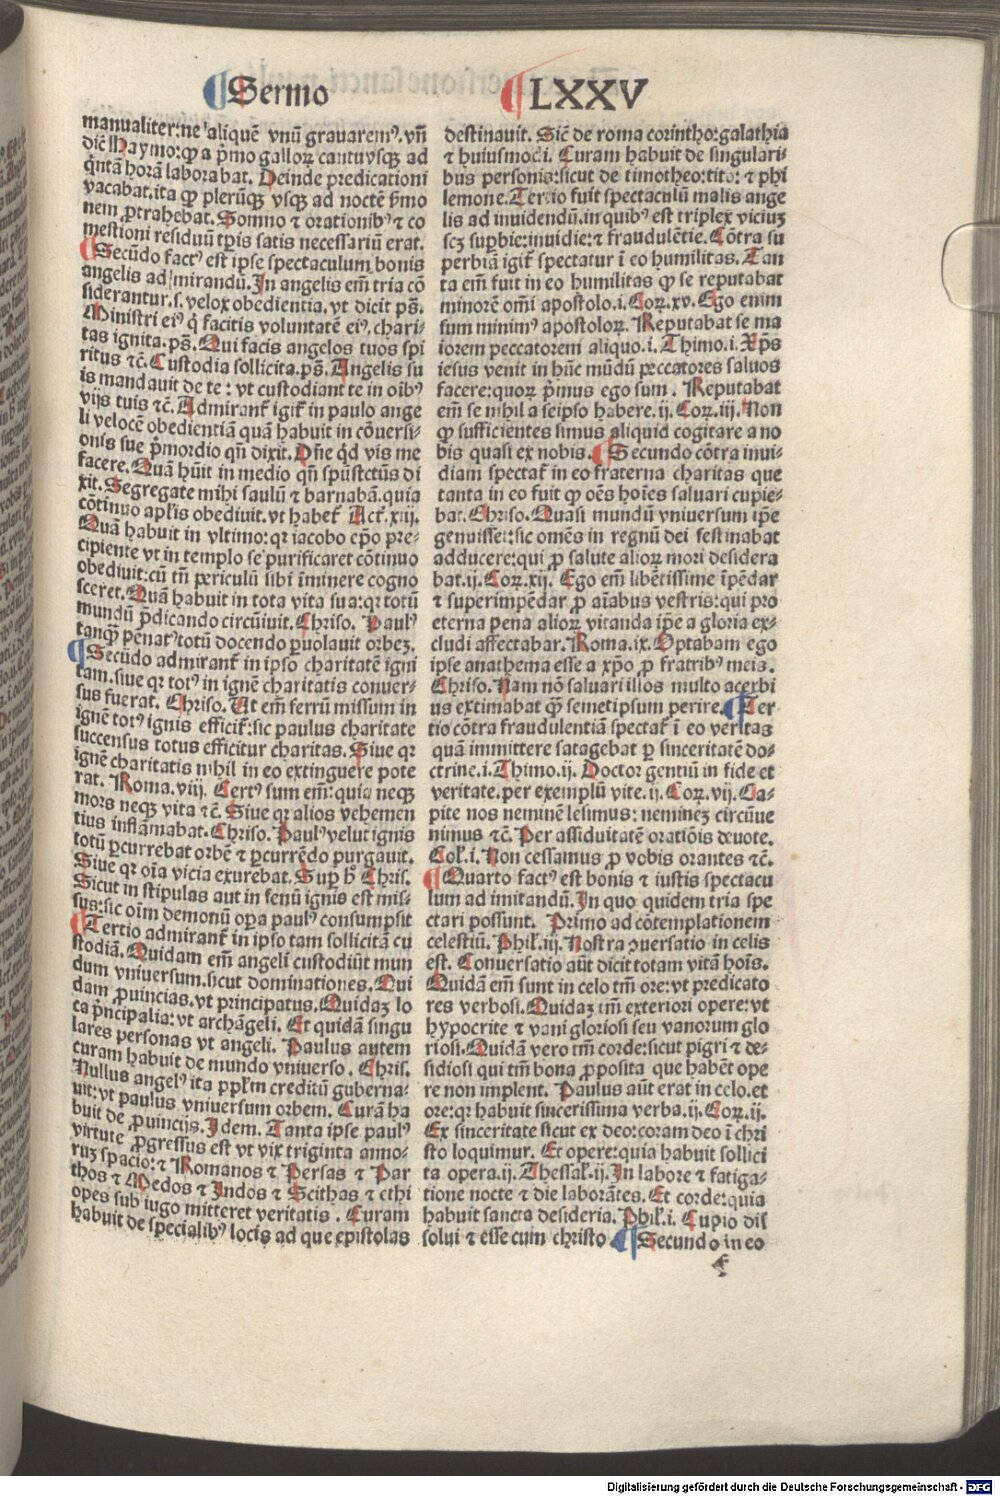 ¶Sermo ¶LXXV
manualiter: ne aliquē vnū grauaremꝰ. vn̄
dic̄ Haymo: ꝙ a pͥmo galloꝝ cantu vsqꝫ ad
qͥntā horā laborabat. Deinde predicationi
vacabat. ita ꝙ plerūqꝫ vsqꝫ ad noctē ẜmo
nem ꝓtrahebat. Somno ⁊ orationibꝰ ⁊ co
mestioni residuū tꝑis satis necessariū erat.
¶Secūdo factꝰ est ipse spectaculum bonis
angelis ad mirandū. In angelis em̄ tria cō
siderantur. s. velox obedientia. vt dicit ps̄.
Ministri eiꝰ qͥ facitis voluntatē eiꝰ, chari-
tas ignita. ps̄. Qui facis angelos tuos spi
ritus ⁊c̄. Custodia sollicita. ps̄. Angelis su
is mandauit de te: vt custodiant te in oibꝰ
vijs tuis ⁊c̄. Admirant̄ igit̄ in paulo ange
li velocē obedientiā quā habuit in cōuersi-
onis sue pͥmordio qn̄ dixit. Dn̄e qͥd vis me
facere. Quā hūit in medio qn̄ spūssctūs di
xit. Segregate mihi saulū ⁊ barnabā. quia
cōtinuo apl̄is obediuit. vt habet̄ Act̄. xiij.
Quā habuit in vltimo: qr iacobo ep̄o pre-
cipiente vt in templo se purificaret cōtinuo
obediuit: cū tn̄ periculū sibi īminere cogno
sceret. Quā habuit in tota vita sua: qr totū
mundū p̄dicando circūiuit. Chriso. Paulꝰ
tanqꝫ pēnatꝰ totū docendo ꝑuolauit orbeꝫ.
¶Secūdo admirant̄ in ipso charitatē igni
tam. siue qr totꝰ in ignē charitatis conuer-
sus fuerat. Chriso. Ut em̄ ferrū missum in
ignē totꝰ ignis efficit̄: sic paulus charitate
succensus totus efficitur charitas. Siue qr
ignē charitatis nihil in eo extinguere pote
rat. Roma. viij. Certꝰ sum em̄: quia neqꝫ
mors neqꝫ vita ⁊c̄. Siue qr alios vehemen
tius inflāmabat. Chriso. Paulꝰ velut ignis
totū ꝑcurrebat orbē ⁊ ꝑcurrēdo purgauit.
Siue qr oīa vicia exurebat. Suꝑ h̄ Chris.
Sicut in stipulas aut in fenū ignis est mis-
sus: sic oīm demonū oꝑa paulꝰ consumpsit
¶Tertio admirant̄ in ipso tam sollicitā cu
stodiā. Quidam em̄ angeli custodiūt mun
dum vniuersum. sicut dominationes. Qui
dam ꝓuincias. vt principatus. Quidaꝫ lo
ca pͥncipalia: vt archāgeli. Et quidā singu
lares personas vt angeli. Paulus autem
curam habuit de mundo vniuerso. Chris.
Nullus angelꝰ ita ppl̄m creditū guberna-
uit: vt paulus vniuersum orbem. Curā ha
buit de ꝓuincijs. Idem. Tanta ipse paulꝰ
virtute ꝓgressus est vt vix triginta anno-
ruꝫ spacio: ⁊ Romanos ⁊ Persas ⁊ Par
thos ⁊ Medos ⁊ Indos ⁊ Scithas ⁊ ethi
opes sub iugo mitteret veritatis. Curam
habuit de specialibꝰ locis ad que epistolas
destinauit. Sic̄ de roma corintho: galathia
⁊ huiusmodi. Curam habuit de singulari-
bus personis: sicut de timotheo: tito: ⁊ phi
lemone. Tertio fuit spectaculū malis ange
lis ad inuidendū. in quibꝰ est triplex viciuꝫ
scꝫ suꝑbie: inuidie: ⁊ fraudulētie. Cōtra su
perbiā igit̄ spectatur ī eo humilitas. Tan
ta em̄ fuit in eo humilitas ꝙ se reputabat
minorē om̄i apostolo. i. Coꝝ. xv. Ego enim
sum minimꝰ apostoloꝝ. Reputabat se ma
iorem peccatorem aliquo. i. Thimo. i. Xp̄s
iesus venit in hūc mūdū peccatores saluos
facere: quoꝝ pͥmus ego sum. Reputabat
em̄ se nihil a seipso habere. ij. Coꝝ. iij. Non
ꝙ sufficientes simus aliquid cogitare a no
bis quasi ex nobis. ¶Secundo cōtra inui-
diam spectat̄ in eo fraterna charitas que
tanta in eo fuit ꝙ oēs hoīes saluari cupie-
bat. Chriso. Quasi mundū vniuersum ip̄e
genuisset: sic omēs in regnū dei festinabat
adducere: qui ꝓ salute alioꝝ mori desidera
bat. ij. Coꝝ. xij. Ego em̄ libētissime īpēdar
⁊ superimpēdar ꝓ aīabus vestris: qui pro
eterna pena alioꝝ vitanda ip̄e a gloria ex-
cludi affectabar. Roma. ix. Optabam ego
ipse anathema esse a xp̄o ꝓ fratribꝰ meis.
Chriso. Nam nō saluari illos multo acerbi
us extimabat qꝫ semetipsum perire. ¶Ter
tio cōtra fraudulentiā spectat̄ ī eo veritas
quā immittere satagebat ꝑ sinceritatē do-
ctrine. i. Thimo. ij. Doctor gentiū in fide et
veritate. per exemplū vite. ij. Coꝝ. vij. Ca-
pite nos neminē lesimus: nemineꝫ circūue
nimus ⁊c̄. Per assiduitatē oratiōis deuote.
Col̄. i. Non cessamus ꝓ vobis orantes ⁊c̄.
¶Quarto factꝰ est bonis ⁊ iustis spectacu
lum ad imitandū. In quo quidem tria spe
ctari possunt. Primo ad cōtemplationem
celestiū. Phil̄. iij. Nostra ꝯuersatio in celis
est. Conuersatio aūt dicit totam vitā hoīs.
Quidā em̄ sunt in celo tm̄ ore: vt predicato
res verbosi. Quidaꝫ tm̄ exteriori opere: vt
hypocrite ⁊ vani gloriosi seu vanorum glo
riosi. Quidā vero tm̄ corde: sicut pigri ⁊ de-
sidiosi qui tm̄ bona ꝓposita que habēt ope
re non implent. Paulus aūt erat in celo. et
ore: qr habuit sincerissima verba. ij. Coꝝ. ij.
Ex sinceritate sicut ex deo: coram deo ī chri
sto loquimur. Et opere: quia habuit sollici
ta opera. ij. Thessal̄. ij. In labore ⁊ fatiga-
tione nocte ⁊ die laborātes. Et corde: quia
habuit sancta desideria. Phil̄. i. Cupio dis
solui ⁊ esse cum christo. ¶Secundo in eo
Digitalisierung gefördert durch die Deutsche Forschungsgemeinschaft - DFG